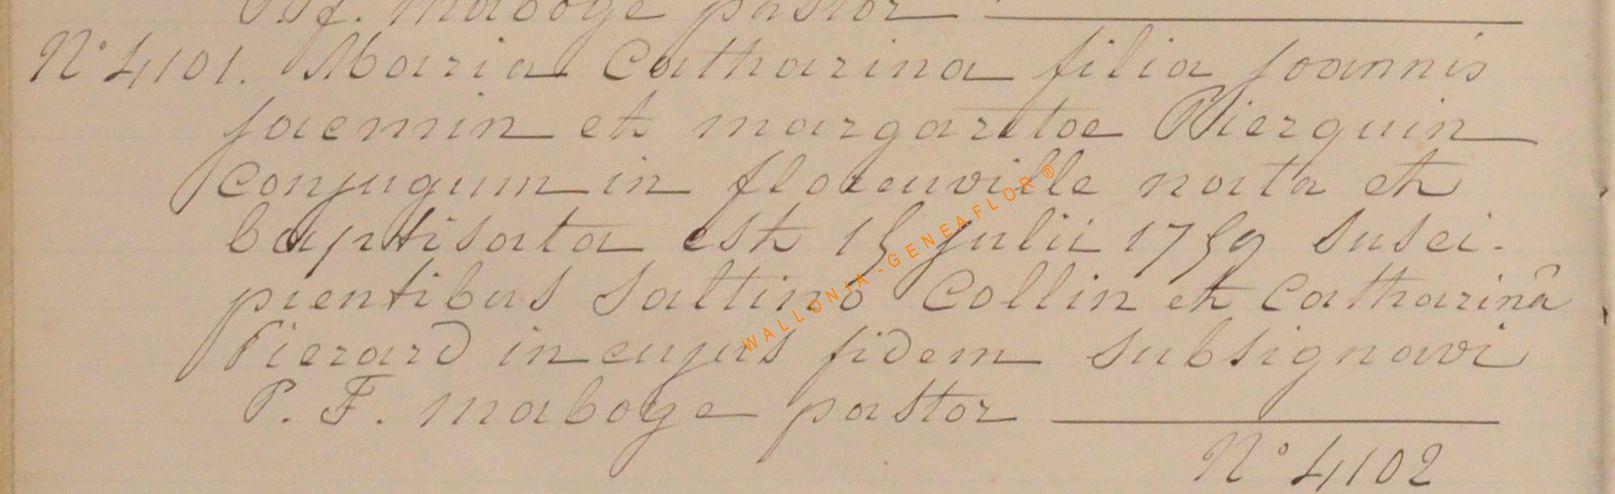 P. f. maboge pastor
N° 4101. Maria Catharina filia Joannis
Jacmin et margaritae Pierquin
Conjugum in florenville nata et
baptisata est 15 Julii 1759 susci-
pientibus Saltino Collin et Catharinâ
Pierard in cujus fidem subsignavi
P. F. maboge pastor
N° 4102
WALLONIA-GENEAFLOR®